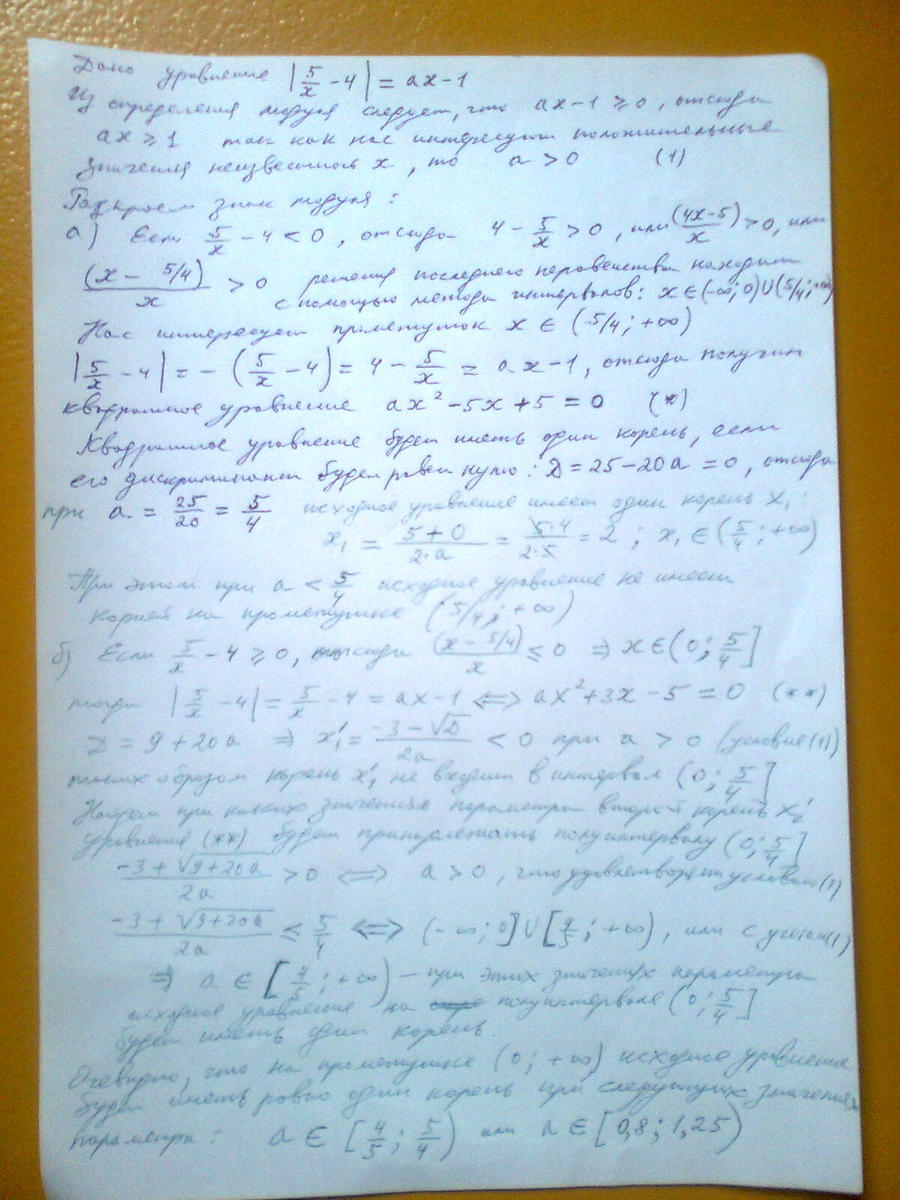 Дано уравнение |5/x - 4| = ax - 1
Из определения модуля следует, что ax - 1 ≥ 0, отсюда
ax ≥ 1 так как нас интересуют положительные
значения неизвестной x, то a > 0 (1)
Раскроем знак модуля:
а) Если 5/x - 4 < 0, отсюда 4 - 5/x > 0, или (4x-5)/x > 0, или
(x - 5/4)/x > 0 решения последнего неравенства находим
с помощью метода интервалов: x ∈ (-∞; 0) ∪ (5/4; +∞)
Нас интересует промежуток x ∈ (5/4; +∞)
|5/x - 4| = -(5/x - 4) = 4 - 5/x = ax - 1, отсюда получим
квадратное уравнение ax² - 5x + 5 = 0 (*)
Квадратное уравнение будет иметь один корень, если
его дискриминант будет равен нулю: D = 25 - 20a = 0, отсюда
при a = 25/20 = 5/4 исходное уравнение имеет один корень x₁:
x₁ = (5 + 0)/(2·a) = (5·4)/(2·5) = 2; x₁ ∈ (5/4; +∞)
При этом при a < 5/4 исходное уравнение не имеет
корней на промежутке (5/4; +∞)
б) Если 5/x - 4 ≥ 0, отсюда (x - 5/4)/x ≤ 0 ⇒ x ∈ (0; 5/4]
тогда |5/x - 4| = 5/x - 4 = ax - 1 ⇔ ax² + 3x - 5 = 0 (**)
D = 9 + 20a ⇒ x₁' = (-3 - √D)/2a < 0 при a > 0 (условие (1))
таким образом корень x₁' не входит в интервал (0; 5/4]
Найдем при каких значениях параметра второй корень x₂'
уравнения (**) будет принадлежать полуинтервалу (0; 5/4]
(-3 + √(9+20a))/2a > 0 ⇔ a > 0, что удовлетворяет условию (1)
(-3 + √(9+20a))/2a ≤ 5/4 ⇔ (-∞; 0] ∪ [4/5; +∞), или с учетом (1)
⇒ a ∈ [4/5; +∞) – при этих значениях параметра
исходное уравнение на полуинтервале (0; 5/4]
будет иметь один корень.
Очевидно, что на промежутке (0; +∞) исходное уравнение
будет иметь ровно один корень при следующих значениях
параметра: a ∈ [4/5; 5/4) или a ∈ [0,8; 1,25)